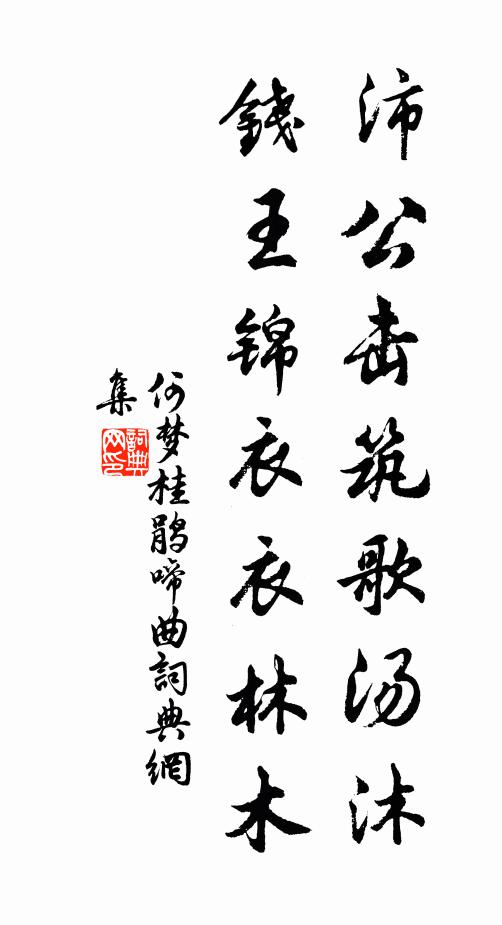 沛公击筑歌汤沐
錢王锦衣衣林木
何梦桂鹃啼曲詞典網
集
詞典网印